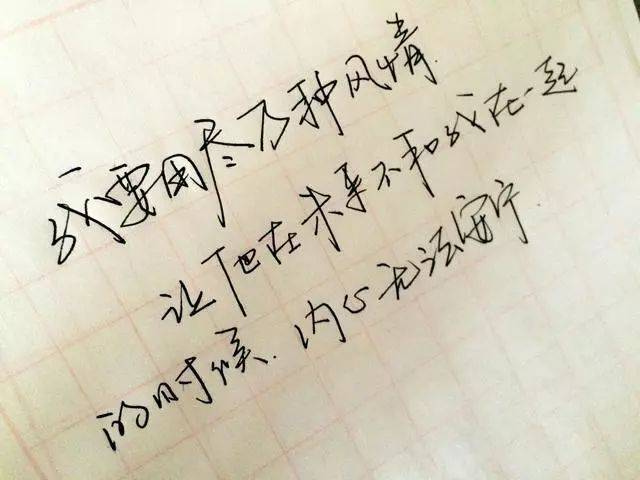 我要用尽万种风情
让他在未来不和我在一起
的时候.内心无法安宁.